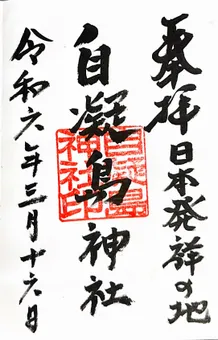 奉拝 日本発祥の地
自凝島神社
自凝島神社印
令和六年三月十六日